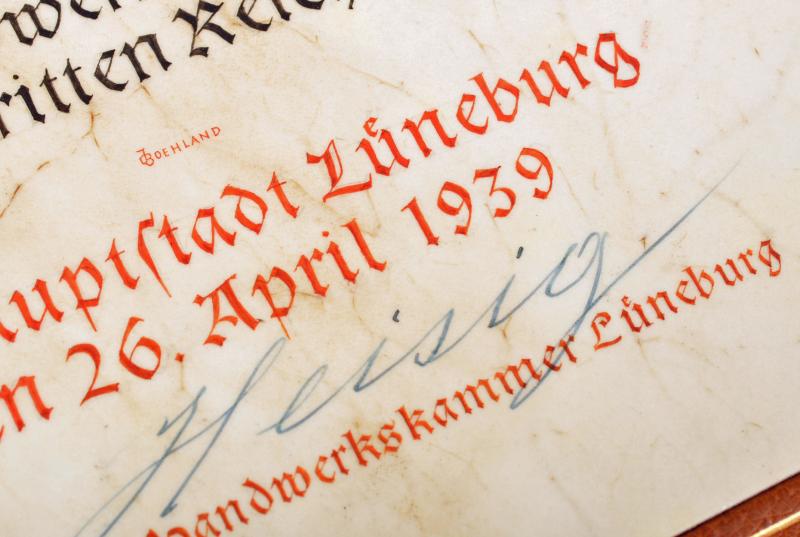 ritten Reich
JBOEHLAND
auptſtadt Lüneburg
en 26. April 1939
Heisig
Handwerkskammer Lüneburg